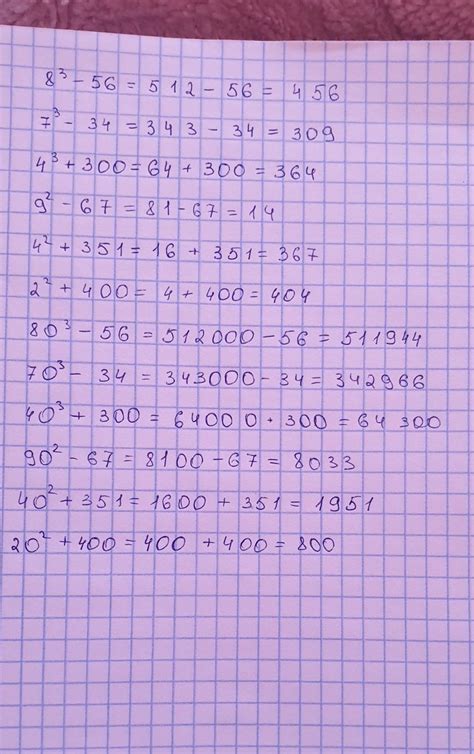 8³ - 56 = 512 - 56 = 456
7³ - 34 = 343 - 34 = 309
4³ + 300 = 64 + 300 = 364
9² - 67 = 81 - 67 = 14
4² + 351 = 16 + 351 = 367
2² + 400 = 4 + 400 = 404
80³ - 56 = 512000 - 56 = 511944
70³ - 34 = 343000 - 34 = 342966
40³ + 300 = 64000 + 300 = 64 300
90² - 67 = 8100 - 67 = 8033
40² + 351 = 1600 + 351 = 1951
20² + 400 = 400 + 400 = 800